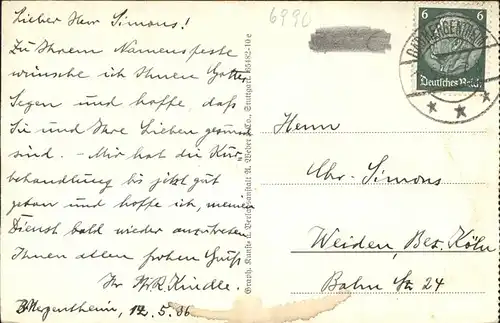 Lieber Herr Simons!
Zu Ihrem Namensfeste
wünsche ich Ihnen Gottes
Segen und hoffe, daß
Sie und Ihre Lieben gesund
sind. – Mir hat die Kur-
behandlung bis jetzt gut
getan und hoffe ich, meinen
Dienst bald wieder anzutreten
Ihnen allen frohen Gruß
Ihr Kindle.
B/Mergentheim, 12.5.36
6990
Graph. Kunst- u. Verlagsanstalt A. Weber & Co., Stuttgart 65482-10e
6 6
Deutsches Reich
Herrn
Chr. Simons
Weiden, Bez. Köln
Bahn Str 24